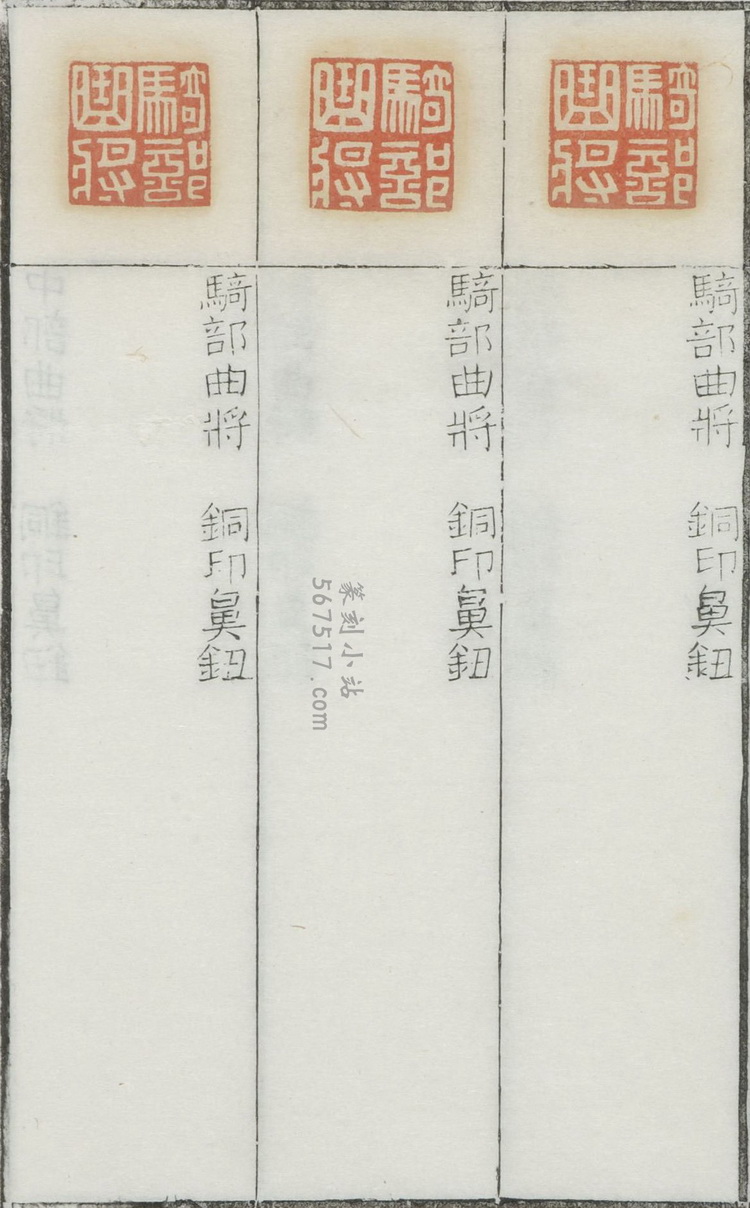 騎部曲將
騎部曲將 銅印鼻鈕
騎部曲將
騎部曲將 銅印鼻鈕
騎部曲將
騎部曲將 銅印鼻鈕
篆刻小站
567517.com